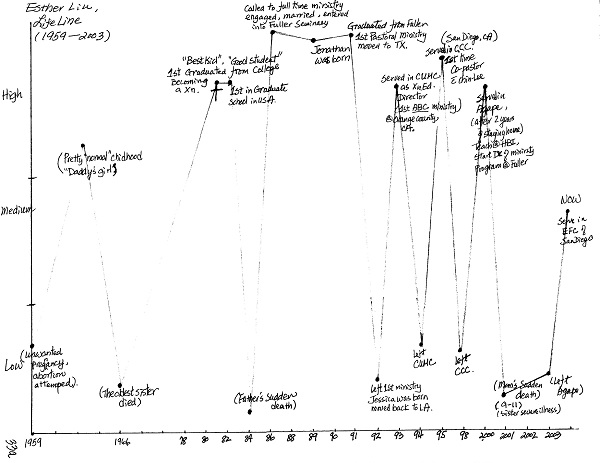 Esther Liu,
Life Line
(1959-2003)
Called to full time ministry
engaged, married, entered
into Fuller Seminary
Graduated from Fuller
1st Pastoral ministry
moved to TX.
Jonathan
was born
"Best kid", "Good student"
1st Graduated from College
Becoming
a Xn.
1st in Graduate
school in USA.
Served in CUMC
as Xn Ed.
Director
(1st ABC ministry)
@ orange county,
CA.
(San Diego, CA)
Served in CCC.
1st time
Co-pastor
Served in
Agape,
(after 2 years
of staying home)
Teach @ HBI,
start D. of ministry
Program @ Fuller
High
(Pretty "normal" childhood
"Daddy's girl")
Medium
NOW
Serve in
EFC of
San Diego
Low
(Unwanted
pregnancy,
abortion
attempted).
(The oldest sister
died)
(Father's sudden
death)
Left 1st ministry
Jessica was born
moved back to LA.
Left
CUMC
Left
CCC.
(Mom's sudden
death)
(9-11)
(Sister serious illness)
(Left
Agape)
1959
1966
78
80
82
84
86
89
91
92
93
94
95
98
2000
2001
2002
2003